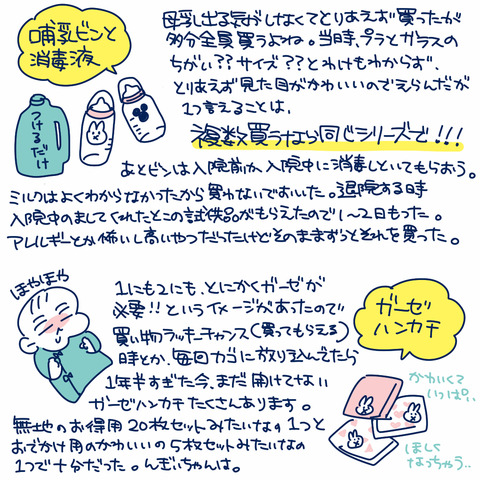 哺乳ビンと
消毒液
母乳出る気がしなくてとりあえず買ったが
多分全員買うよね。当時、プラとガラスの
ちがい??サイズ??とわけもわからず、
とりあえず見た目がかわいいのでえらんだが
1つ言えることは、
複数買うなら同じシリーズで!!!
つけるだけ
あとビンは入院前か入院中に消毒しといてもらおう。
ミルクはよくわからなかったから買わないでおいた。退院する時
入院中のましてくれたとこの試供品がもらえたので1〜2日もった。
アレルギーとか怖いし高いやつだったけどそのままずっとそれを買った。
ほやほや
1にも2にも、とにかくガーゼが
必要!!というイメージがあったので
買い物ラッキーチャンス(買ってもらえる)
時とか、毎回カゴに放り込んでたら
1年半すぎた今、まだ開けてない
ガーゼハンカチたくさんあります。
無地のお得用20枚セットみたいなの1つと
おでかけ用のかわいいの5枚セットみたいなの
1つで十分だった。んぎぃちゃんは。
ガーゼ
ハンカチ
かわいくて
いっぱい..
ほしく
なっちゃう..